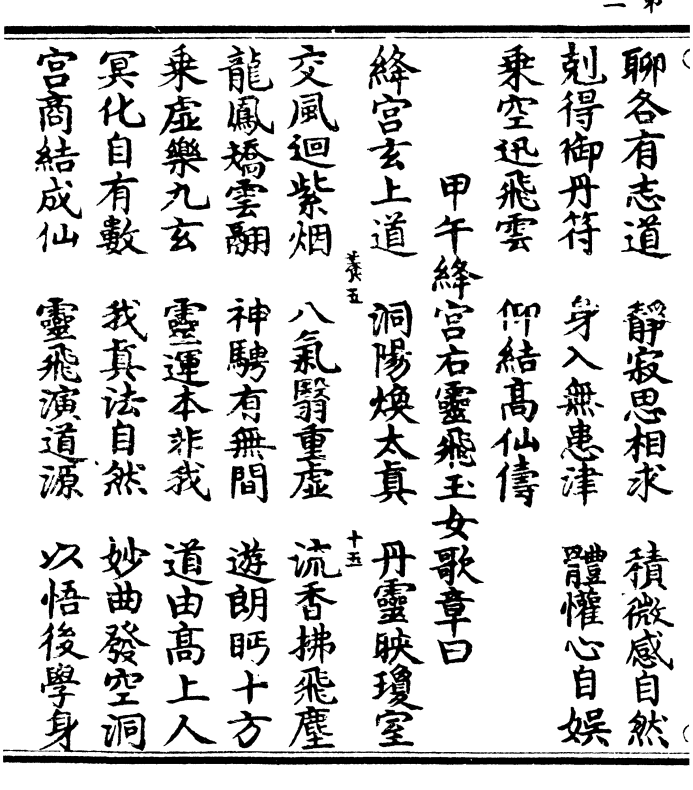 聊各有志道　靜寂思相求　積微感自然
剋得御丹符　身入無患津　體懽心自娛
乗空迅飛雲　仰結髙仙儔
甲午絳宫右靈飛玉女歌章曰
絳宫玄上道　洞陽煥太真　丹靈映瓊室
養五　十五
交風迴紫烟　八氣翳重虛　流香拂飛塵
龍鳳矯雲翮　神騁有無間　遊朗眄十方
乗虛樂九玄　靈運本非我　道由髙上人
冥化自有數　我真法自然　妙曲發空洞
宫商結成仙　靈飛演道源　以悟後學身